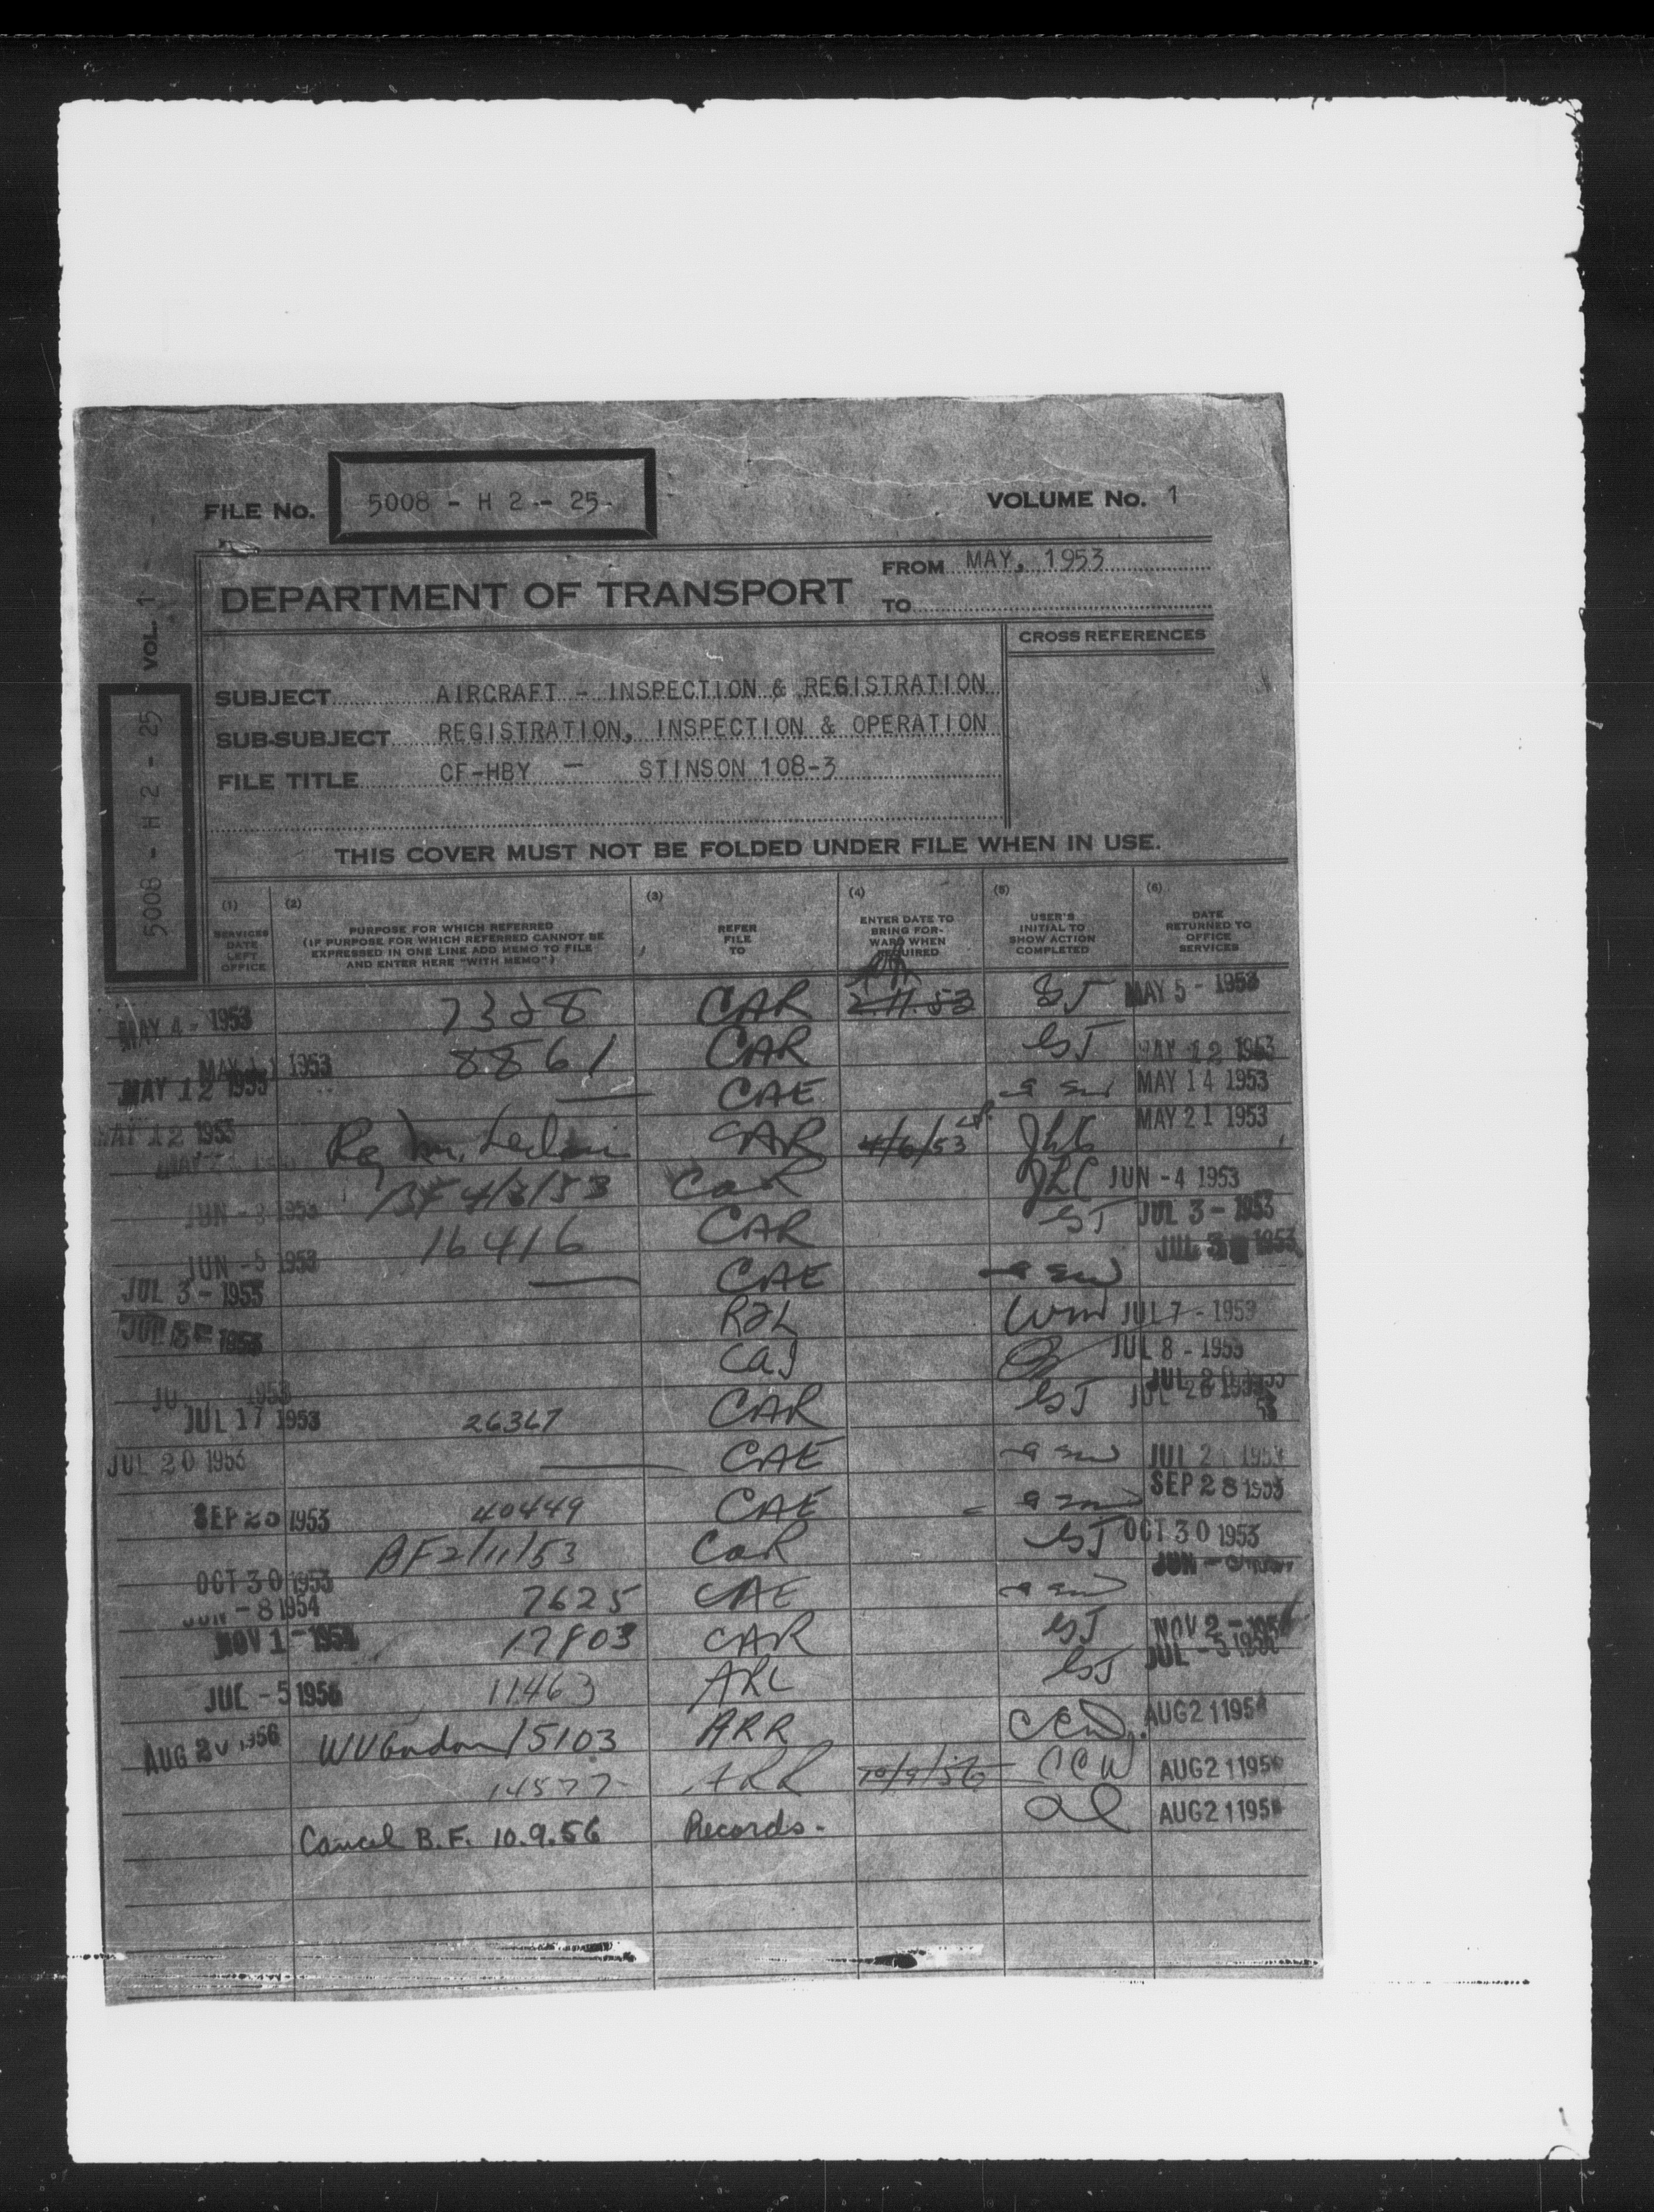 FILE No. 5008 - H 2 - 25-
VOLUME No. 1
DEPARTMENT OF TRANSPORT
FROM MAY, 1953
TO
CROSS REFERENCES
SUBJECT AIRCRAFT - INSPECTION & REGISTRATION
SUB-SUBJECT REGISTRATION, INSPECTION & OPERATION
FILE TITLE CF-HBY - STINSON 108-3
5008 - H 2 - 25 VOL. 1
THIS COVER MUST NOT BE FOLDED UNDER FILE WHEN IN USE.
(1) SERVICES DATE LEFT OFFICE
(2) PURPOSE FOR WHICH REFERRED (IF PURPOSE FOR WHICH REFERRED CANNOT BE EXPRESSED IN ONE LINE ADD MEMO TO FILE AND ENTER HERE "WITH MEMO")
(3) REFER FILE TO
(4) ENTER DATE TO BRING FORWARD WHEN REQUIRED
(5) USER'S INITIAL TO SHOW ACTION COMPLETED
(6) DATE RETURNED TO OFFICE SERVICES
MAY 4 - 1953 7328 CAR 2.11.53 MAY 5 - 1953
MAY 11 1953 8861 CAR MAY 12 1953
MAY 12 1953 — CAE MAY 14 1953
MAY 12 1953 CAR 4/6/53 MAY 21 1953
JUN - 3 1953 BF 4/6/53 CAR JUN - 4 1953
JUN - 5 1953 16416 CAR JUL 3 - 1953
JUL 3 - 1953 — CAE JUL 3 1953
R2L JUL 7 - 1953
CAJ JUL 8 - 1953
JUL 17 1953 26367 CAR JUL 20 1953
JUL 20 1953 — CAE JUL 2 1953
SEP 1953 40449 CAE SEP 28 1953
OCT 30 1953 BF 2/11/53 CAR OCT 30 1953
JUN - 8 1954 7625 CAE JUN
NOV 1 - 1954 17803 CAR NOV 2 - 1954
JUL - 5 1956 11463 ARC JUL - 5 1956
AUG 20 1956 15103 ARR AUG 21 195
14577 ARR 10/9/56 CCW AUG 21 195
Cancel B.F. 10.9.56 Records. AUG 21 195